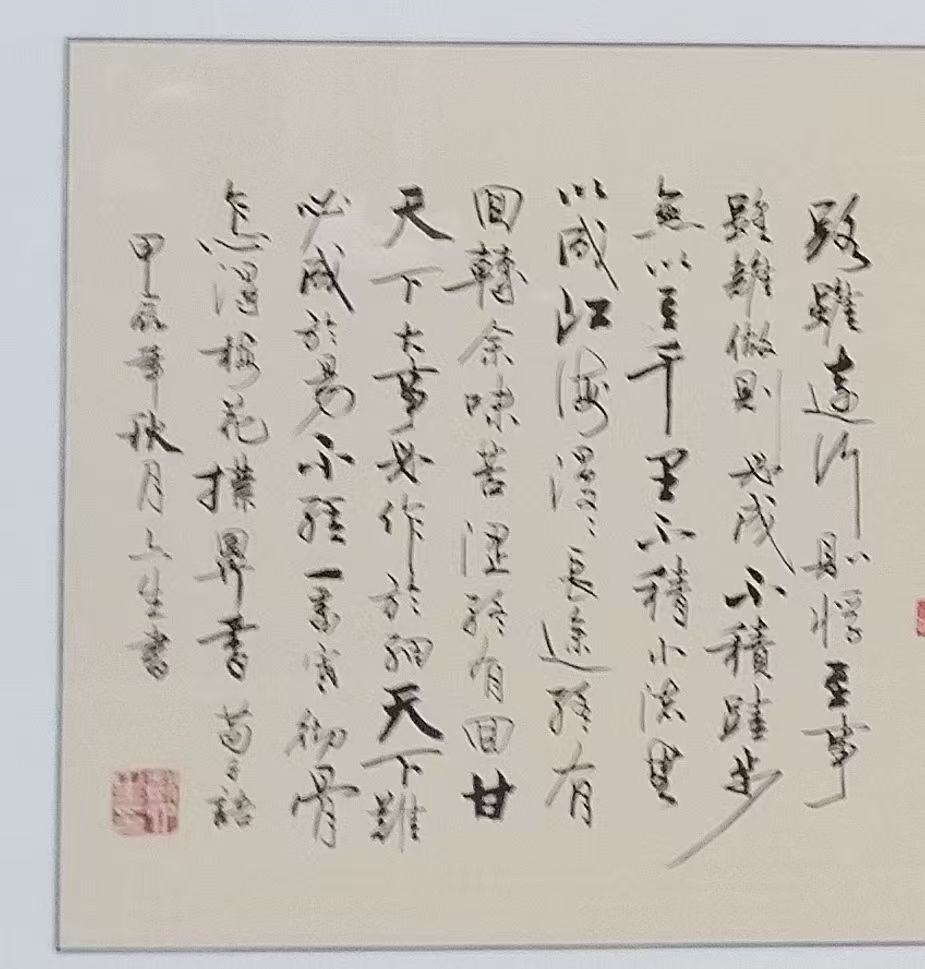 路雖遠行則將至事
雖難做則必成不積跬步
無以至千里不積小流里
以成江海漫漫長途終有
回轉余味苦澀終有回甘
天下大事必作於細天下難
必成於易不經一番寒徹骨
怎得梅花撲鼻香
甲辰年秋月上生書